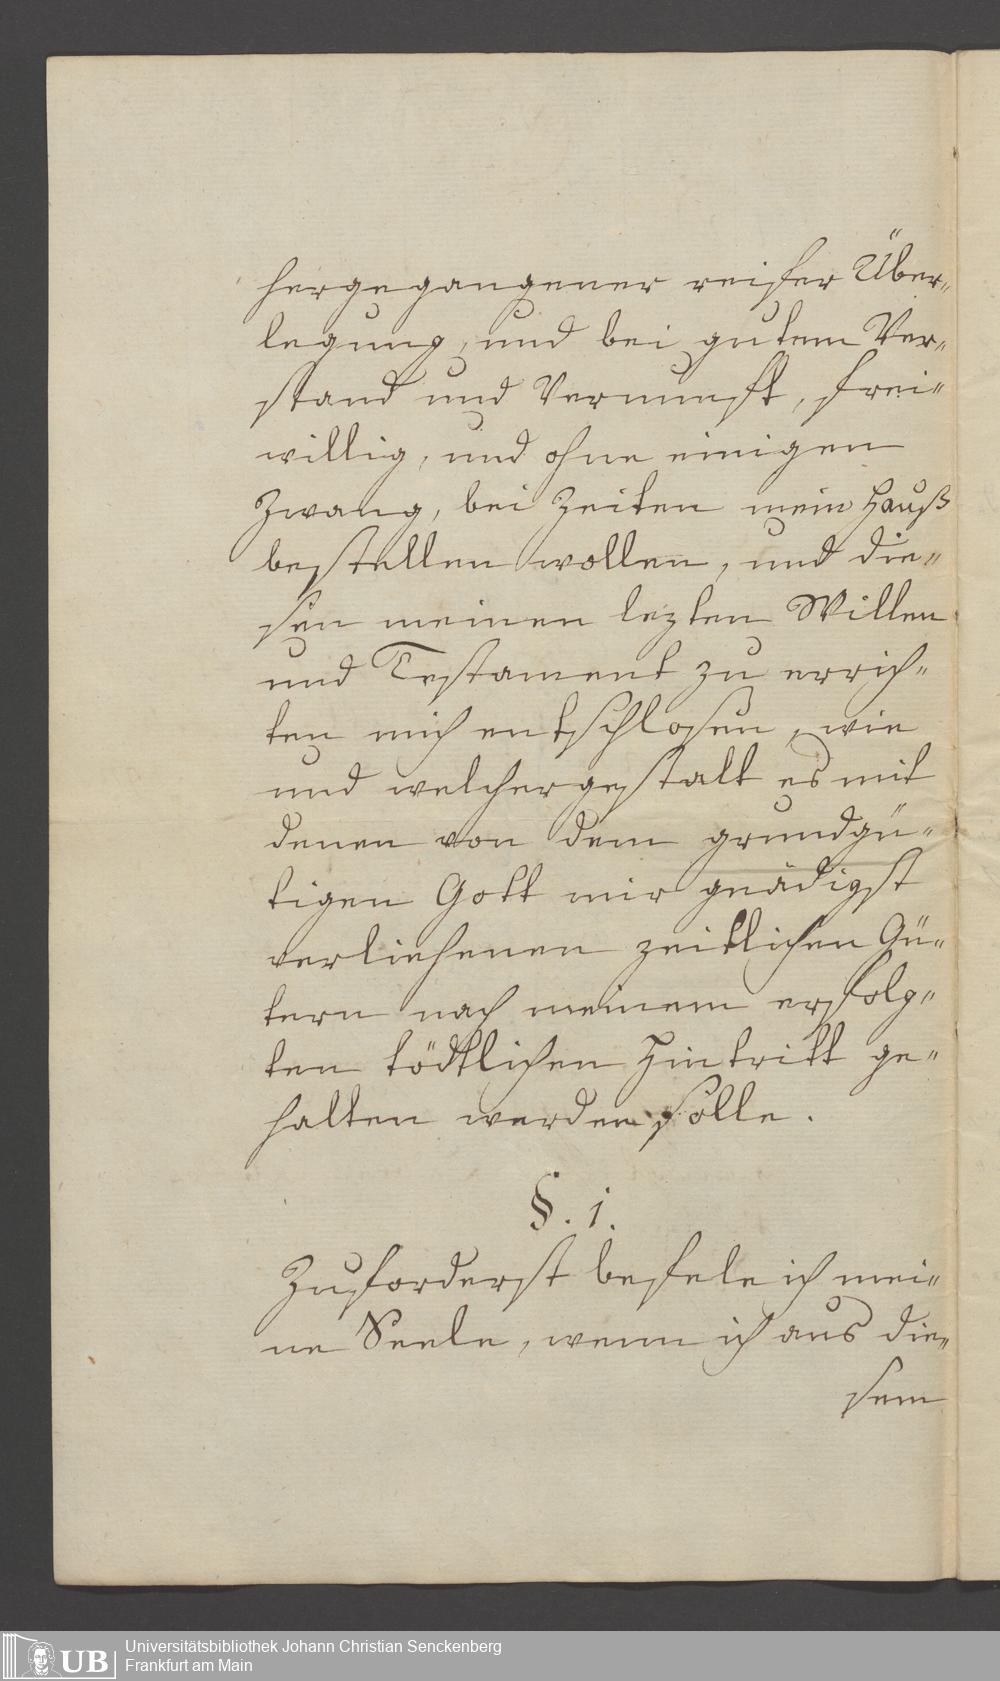 hergegangener reifer Über-
legung, und bei gutem Ver-
stand und Vernunft, frei-
willig, und ohne einigen
Zwang, bei Zeiten mein Hauß
bestellen wollen, und die-
sen meinen lezten Willen
und Testament zu errich-
ten mich entschlosen, wie
und welchergestalt es mit
denen von dem grundgü-
tigen Gott mir gnädigst
verliehenen zeitlichen Gü-
tern nach meinem erfolg-
ten tödtlichen Hintritt ge-
halten werden solle.
§. 1.
Zuforderst befele ich mei-
ne Seele, wenn ich aus die-
sem
UB
Universitätsbibliothek Johann Christian Senckenberg
Frankfurt am Main